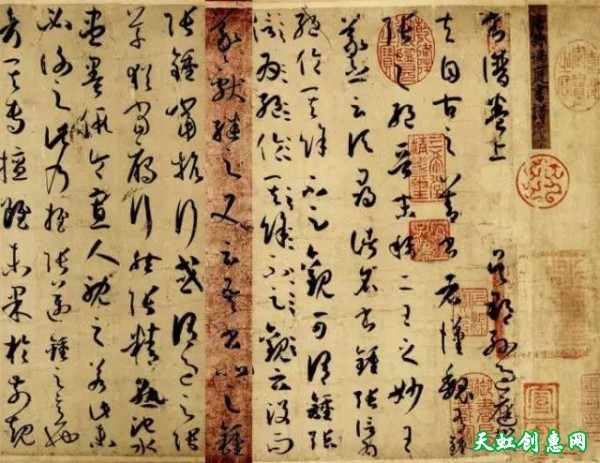 書譜卷上 吳郡孫過庭
夫自古之善書者漢魏有鍾
張之絕晉末稱二王之妙王
羲之云頃尋諸名書鍾張信為
絕倫其餘不足觀可謂鍾張
絕倫其餘不足觀云沒而
羲獻繼之又云吾書比之鍾
張鍾當抗行或謂過之張
草猶當雁行然張精熟池水
盡墨假令寡人耽之若此未
必謝之此乃推張邁鍾之意也
考其專擅雖未果於前規
天虹创惠网